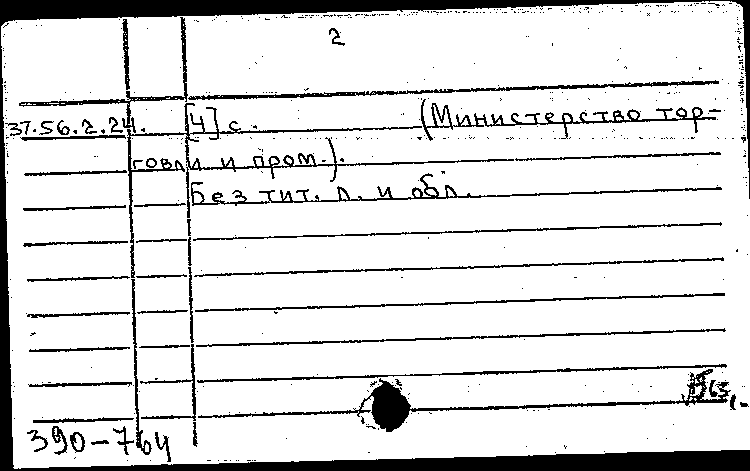 2
37.56.2.24. [4] с. (Министерство тор-
говли и пром.).
Без тит. л. и обл.
390-764